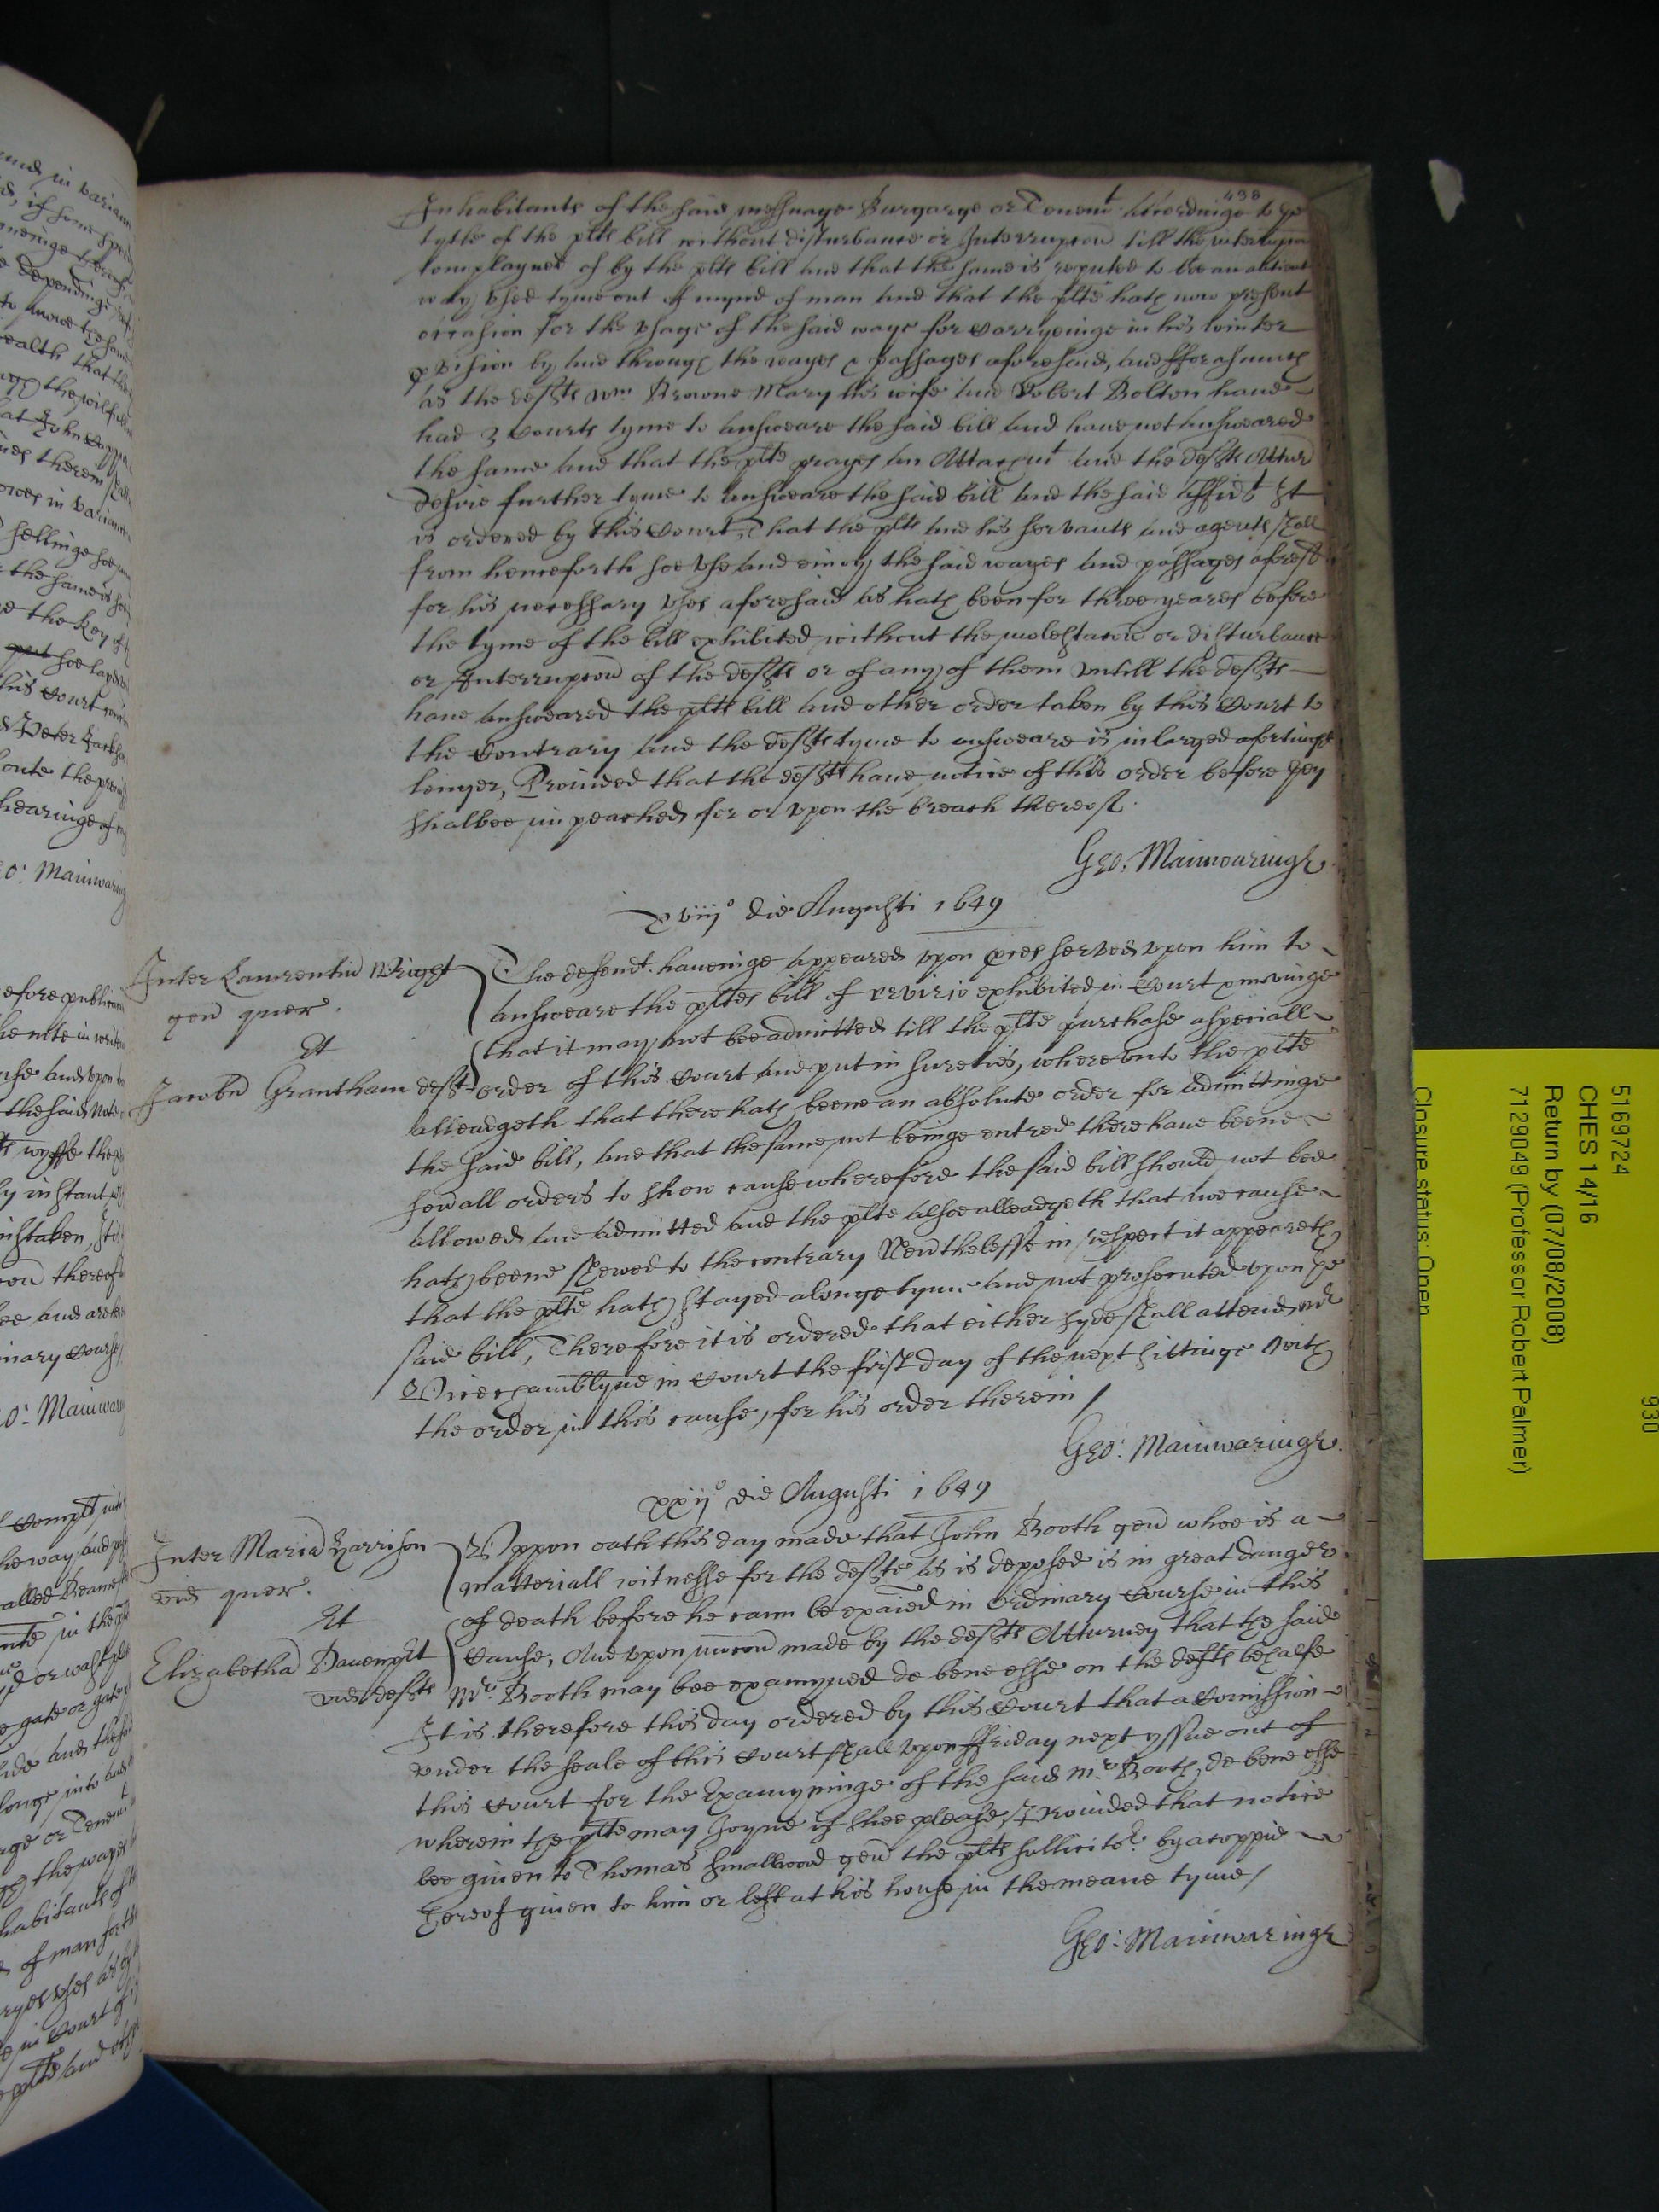 438
Inhabitants of the said messuage Burgarge or Tenemt accordinge to ye
tytle of the plts bill without disturbance or Interrupcon till the interrupcon
complayned of by the plts bill and that the same is reputed to bee an antient
way vsed tyme out of mynd of man and that the plte hath now present
occasion for the vsage of the said waye for Carryeinge in his winter
pvision by and through the wayes & passages aforesaid, and fforasmuch
as the defts Wm Browne Mary his wife and Robert Bolton haue
had 3 Courts tyme to answeare the said bill and haue not answeared
the same and that the plte prayes an Attachmt and the defts Attur
desire further tyme to answeare the said bill and the said affidt It
is ordered by this Court, That the plte and his servants and agents shall
from henceforth soe vse and enioy the said wayes and passages aforesd
for his necessary vses aforesaid as hath been for three yeares before
the tyme of the bill exhibited without the molestacon or disturbance
or Interrupcon of the defts or of any of them vntill the defts
haue answeared the plts bill and other order taken by this Court to
the Contrary and the defts tyme to answeare is inlarged a fortnight
longer, Prouided that the defts haue notice of this order before they
shalbee impeached for or vpon the breach thereof.
Geo: Mainwaringe
xviijo die Augusti 1649
Inter Laurentiu Wright
gen quer.
Et
Jacobu Grantham deft
The defendt. haueinge appeared vpon pces served vpon him to
answeare the pltes bill of revivio exhibited in Court & moveinge
that it may not bee admitted till the plte purchase a speciall
order of this Court and put in sureties, wherevnto the plte
alleadgeth that there hath beene an absolute order for admittinge
the said bill, and that the same not beinge entred there haue beene
seuall orders to show cause wherefore the said bill should not bee
allowed and admitted and the plte alsoe alleadgeth that noe cause
hath beene shewed to the contrary Neuthelesse in respect it appeareth
that the plte hath stayed a longe tyme and not prosecuted vpon ye
said bill, Therefore it is ordered that either syde shall attend Mr
Vicechamblyne in Court the first day of the next sittinge with
the order in this cause, for his order therein /
Geo: Mainwaringe
xxijo die Augusti 1649
Inter Maria Harrison
vid quer.
Et
Elizabetha Davenpt
vid defte
Vppon oath this day made that John Booth gen whoe is a
matteriall witnesse for the defte as is deposed is in great danger
of death before he cann be exaied in ordinary Course in this
Cause, And vpon mocon made by the defts Atturney that the said
Mr. Booth may bee examyned de bene esse on the defts behalfe
It is therefore this day ordered by this Court that a Comission
vnder the seale of this Court shall vpon ffriday next yssue out of
this Court for the Examyninge of the said Mr. Booth de bene esse
wherein the plte may Joyne if shee please, Prouided that notice
bee giuen to Thomas Smallwood gen the plts sollicitor by a coppie
hereof giuen to him or left at his house in the meane tyme /
Geo: Mainwaringe
5169724
CHES 14/16
Return by (07/08/2008)
7129049 (Professor Robert Palmer)
Closure status: Open
930